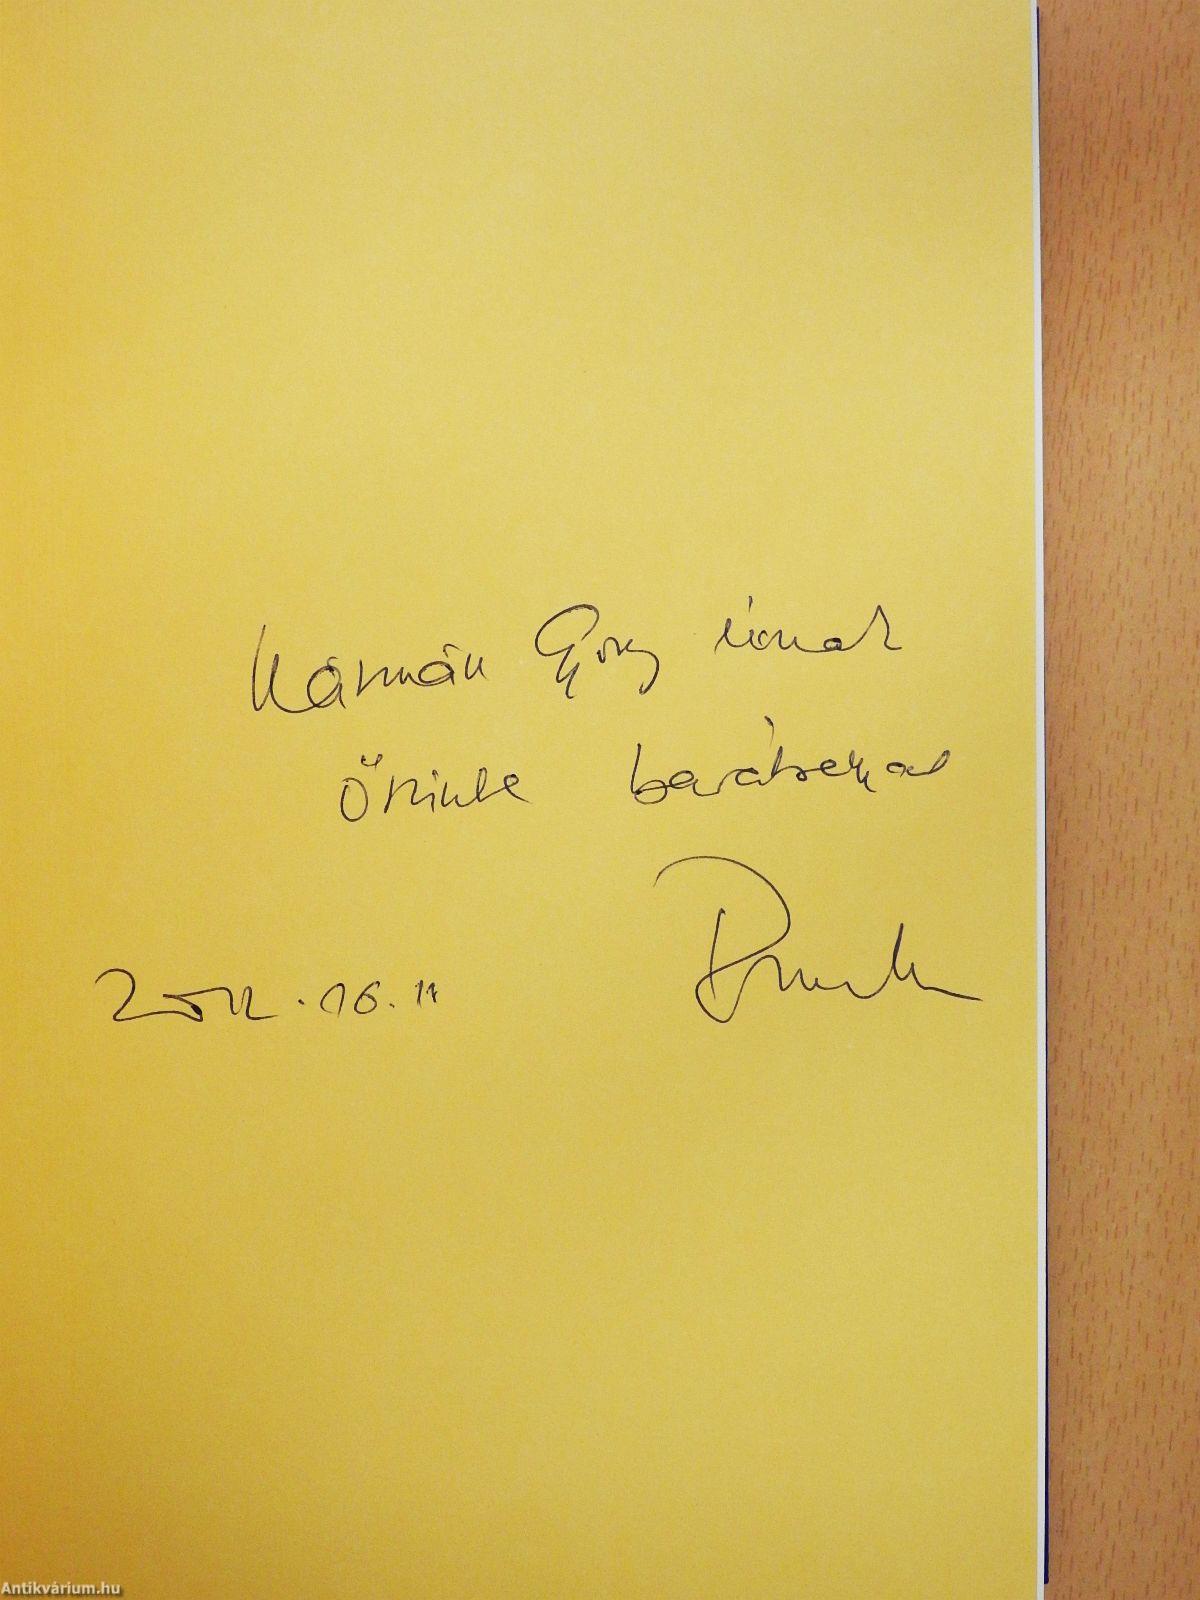 Kármán György úrnak
őszinte barátsággal
2012. 10. 11
Antikvárium.hu